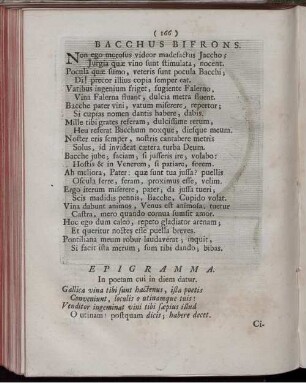 ( 166 )
BACCHUS BIFRONS.
Non ego morosus videor madefactus Jaccho;
Jurgia quæ vino sunt stimulata, nocent.
Pocula quæ sumo, veteris sunt pocula Bacchi;
Di! precor illius copia semper eat.
Vatibus ingenium friget, fugiente Falerno,
Vina Falerna fluant, dulcia metra fluent.
Bacche pater vini, vatum miserere, reportor;
Si cupias nomen dantis habere, dabis.
Mille tibi grates referam, dulcissime rerum,
Heu referat Bacchum noxque, diesque meum.
Noster eris semper, nostris cantabere metris
Solus, id invideat cætera turba Deum.
Bacche jube, faciam, si jusseris ire, volabo:
Hostis & in Venerem, si patiare, ferem.
Ah meliora, Pater: quæ sunt tua jussa? puellis
Oscula ferre, ferum, proximus esse, velim.
Ergo iterum miserere, pater; da jussa tueri;
Scis madidis pennis, Bacche, Cupido volat.
Vina dabunt animos, Venus est animosa, tuetur
Castra, mero quando cornua sumsit amor.
Hoc ego dum calco, repeto gladiator arenam;
Et queritur noctes esse puella breves.
Pontiliana meum robur laudaverat; inquit,
Si facit ista merum, sum tibi dando, bibas.
EPIGRAMMA.
In poetam cui in diem datur.
Gallica vina tibi sunt hactenus, ista poetis
Conveniunt, loculis o utinamque tuis:
Venditor ingeminat vini tibi sæpius illud
O utinam: postquam dicis; habere docet.
Ci-